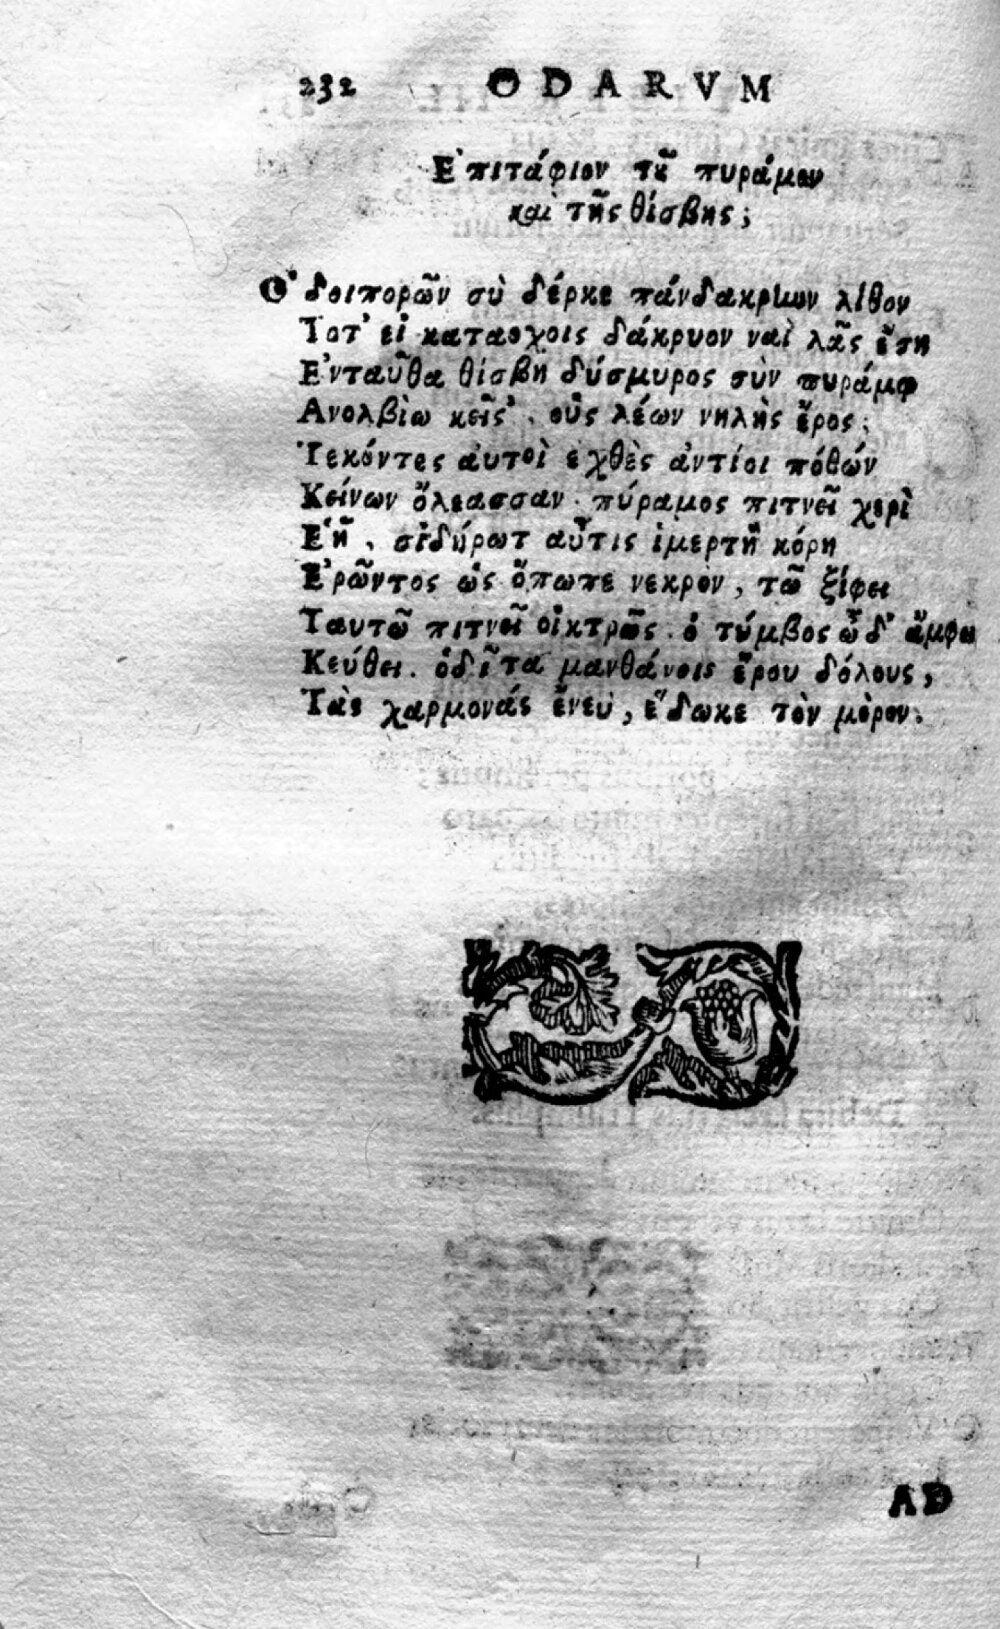 232 ODARVM
Ε᾿πιτάφιον τȣ̃ πυράμου
καὶ τῆς θίσβης;
Ο῾δοιπορῶν σὺ δέρκε πάνδακρυων λίθον
Τοτ' εἰ κατασχοις δάκρυον ναὶ λᾶς ἔση
Ε᾿νταῦθα θίσβη δύσμυρος σὺν πυράμῳ
Ανολβίω κεῖς', οὓς λέων νηλὴς ἔρος;
Τεκόντες ἀυτοὶ ἐχθὲς ἀντίοι πόθων
Κείνων ὄλεασσαν. πύραμος πιτνεῖ χερὶ
Ε῾ῆ, σιδύρωτ αὖτις ἱμερτὴ κόρη
Ε᾿ρῶντος ὡς ὄπωπε νεκρὸν, τῶ ξίφει
Ταυτῶ πιτνεῖ οἰκτρῶς. ὁ τύμβος ὧδ' ἄμφω
Κεύθει. ὁδῖτα μανθάνοις ἔρου δόλους,
Τὰς χαρμονάς ἄνευ, ἔδωκε τὸν μὸρον.
AD